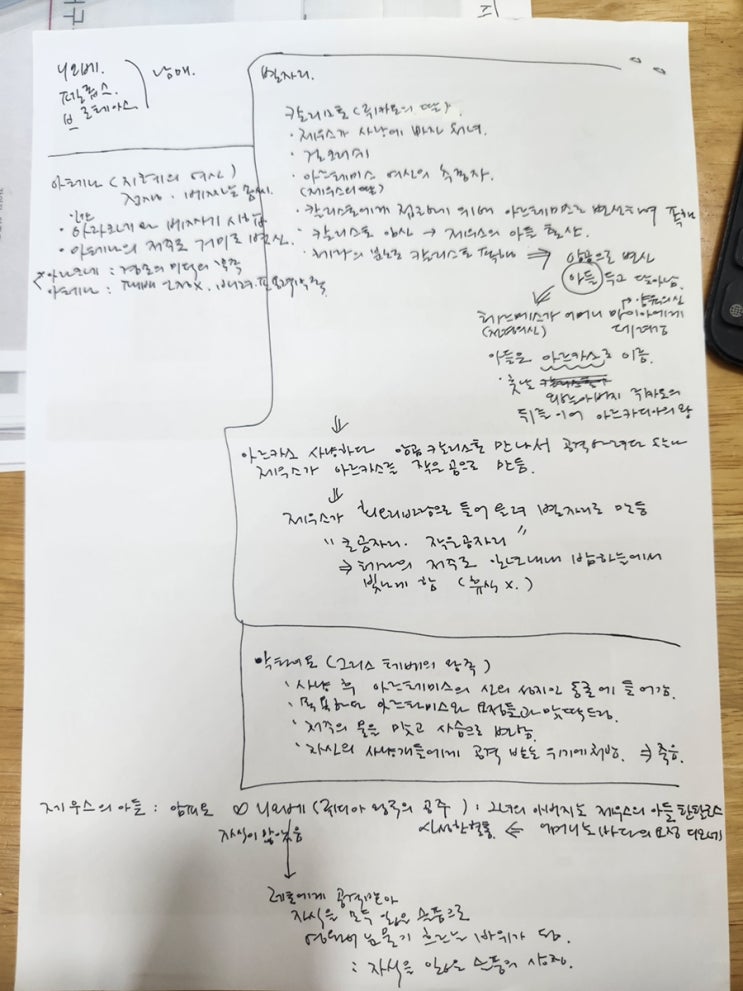 니오베.
펠롭스.
브로테아스
남매.
별자리.
칼리스토 (뤼카온의 딸).
· 제우스가 사냥에 빠진 처녀.
· 걸크러쉬
· 아르테미스 여신의 추종자.
(제우스의 딸)
· 칼리스토에게 접근하기 위해 아르테미스로 변신하여 접근해
· 칼리스토 임신 → 제우스의 아들 출산.
· 헤라의 분노로 칼리스토 ⇒ 암곰으로 변신
아들 두고 달아남.
헤르메스가 어머니 마이아에게
(전령의 신) 데려감
아들은 아르카스로 이름.
· 훗날
외할아버지 뤼카온의
뒤를 이어 아르카디아의 왕
⇓
아르카스 사냥하다 암곰 칼리스토를 만나서 공격하려다
제우스가 아르카스를 작은 곰으로 만듦.
⇓
제우스가 회오리바람으로 들어 올려 별자리로 만듦
" 큰곰자리. 작은곰자리 "
⇒ 헤라의 저주로 일년내내 밤하늘에서
빛나게 함 (휴식 x.)
아테나 (지혜의 여신)
· 아라크네와 베짜기 시합
· 아테나의 저주로 거미로 변신.
악타이온 (그리스 테베의 왕족)
· 사냥 후 아르테미스의 신의 성지인 동굴에 들어감.
· 목욕하던 아르테미스와 요정들과 맞딱드림.
· 저주의 물을 맞고 사슴으로 변함.
· 자신의 사냥개들에게 공격 받는 위기에 처함. ⇒ 죽음.
제우스의 아들 : 암피온 ∞ 니오베 (뤼디아 왕족의 공주) : 그녀의 아버지도 제우스의 아들 탄탈로스
자식이 많았음 신성한 혈통 ⇐ 어머니는 (바다의 요정 디오네)
↓
레토에게 공격받아
자식을 모두 잃은 슬픔으로
영원히 눈물이 흐르는 바위가 됨.
: 자식을 잃은 슬픔의 상징.